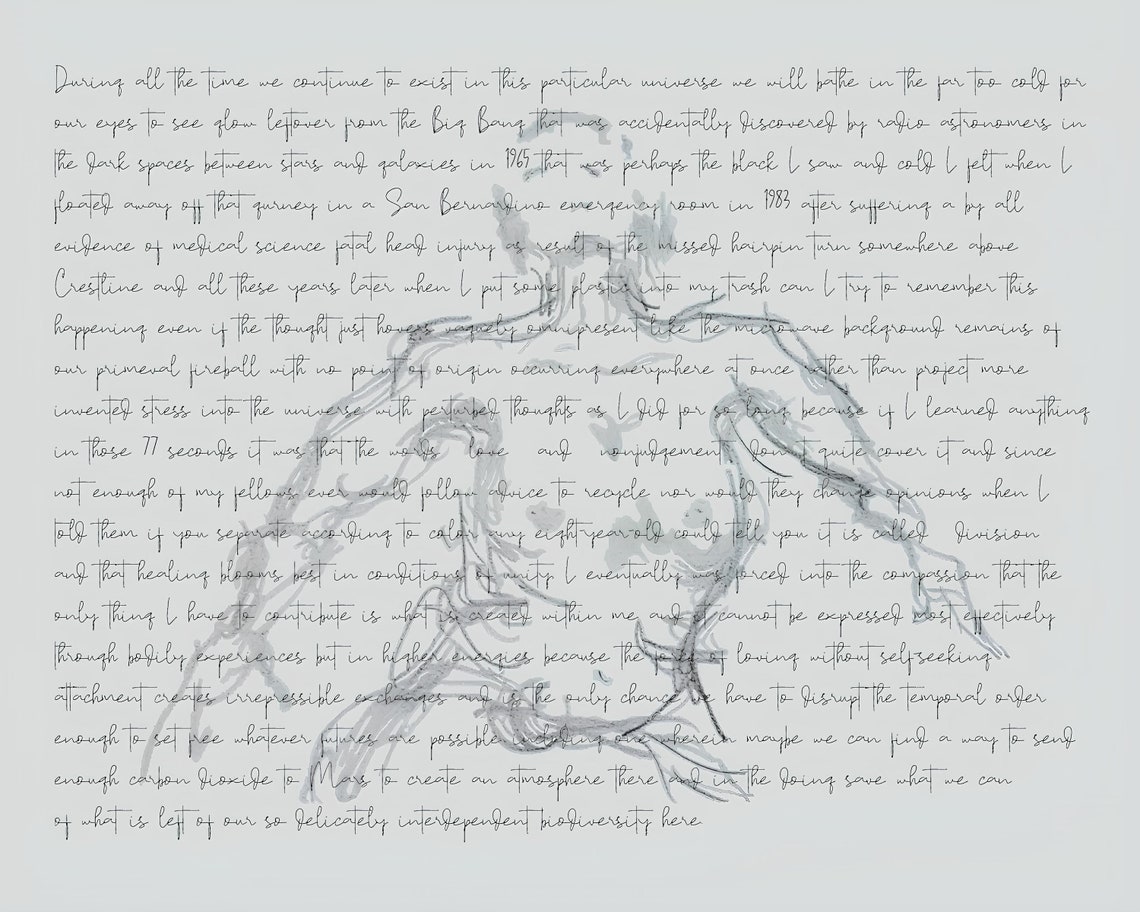 During all the time we continue to exist in this particular universe we will bathe in the far too cold for
our eyes to see glow leftover from the Big Bang that was accidentally discovered by radio astronomers in
the dark spaces between stars and galaxies in 1965 that was perhaps the black I saw and cold I felt when I
floated away off that gurney in a San Bernardino emergency room in 1983 after suffering a by all
evidence of medical science fatal head injury as result of the missed hairpin turn somewhere above
Crestline and all these years later when I put some plastic into my trash can I try to remember this
happening even if the thought just hovers vaguely omnipresent like the microwave background remains of
our primeval fireball with no point of origin occurring everywhere at once rather than project more
invented stress into the universe with perturbed thoughts as I did for so long because if I learned anything
in those 77 seconds it was that the words love and nonjudgement don't quite cover it and since
not enough of my fellows ever would follow advice to recycle nor would they change opinions when I
told them if you separate according to color any eight-year-old could tell you it is called division
and that healing blooms best in conditions of unity I eventually was forced into the compassion that the
only thing I have to contribute is what is created within me and it cannot be expressed most effectively
through bodily experiences but in higher energies because the force of loving without self-seeking
attachment creates irrepressible exchanges and is the only chance we have to disrupt the temporal order
enough to set free whatever futures are possible including one wherein maybe we can find a way to send
enough carbon dioxide to Mars to create an atmosphere there and in the doing save what we can
of what is left of our so delicately interdependent biodiversity here